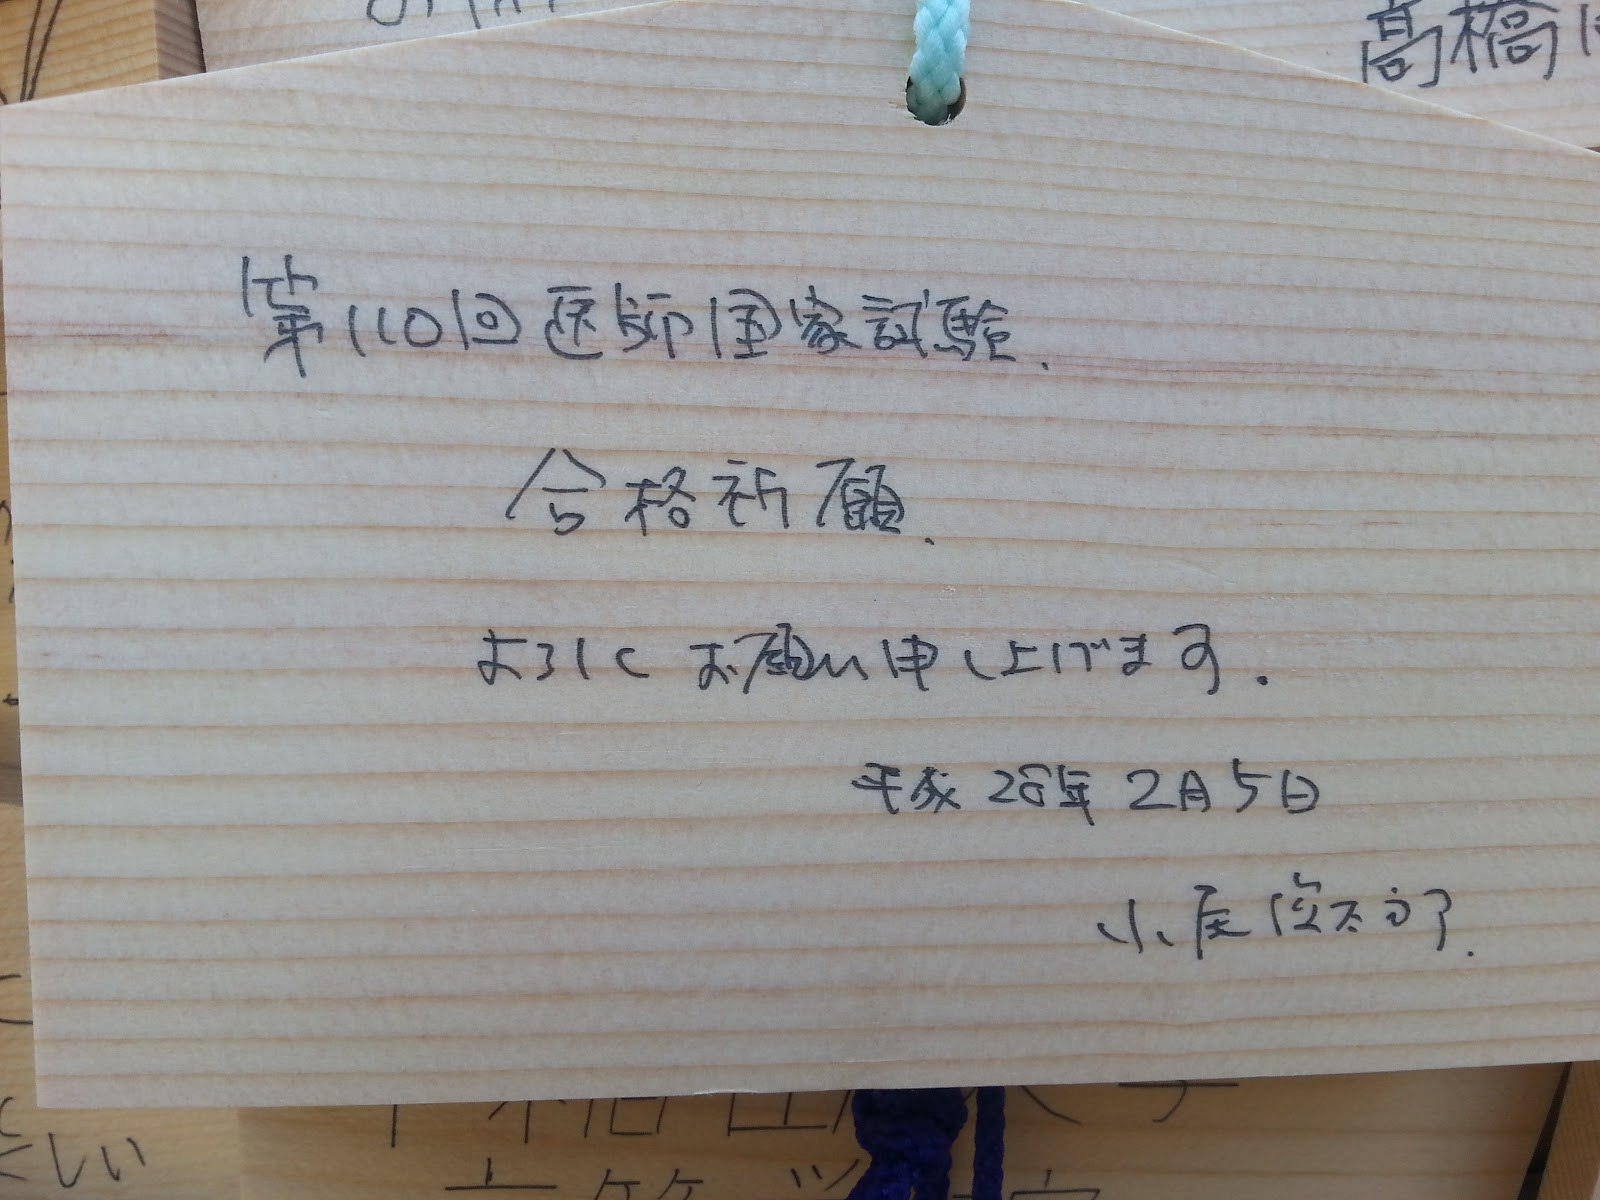 高橋
第110回医師国家試験.
合格祈願.
よろしくお願い申し上げます.
平成28年2月5日
小尾俊太郎.
しい